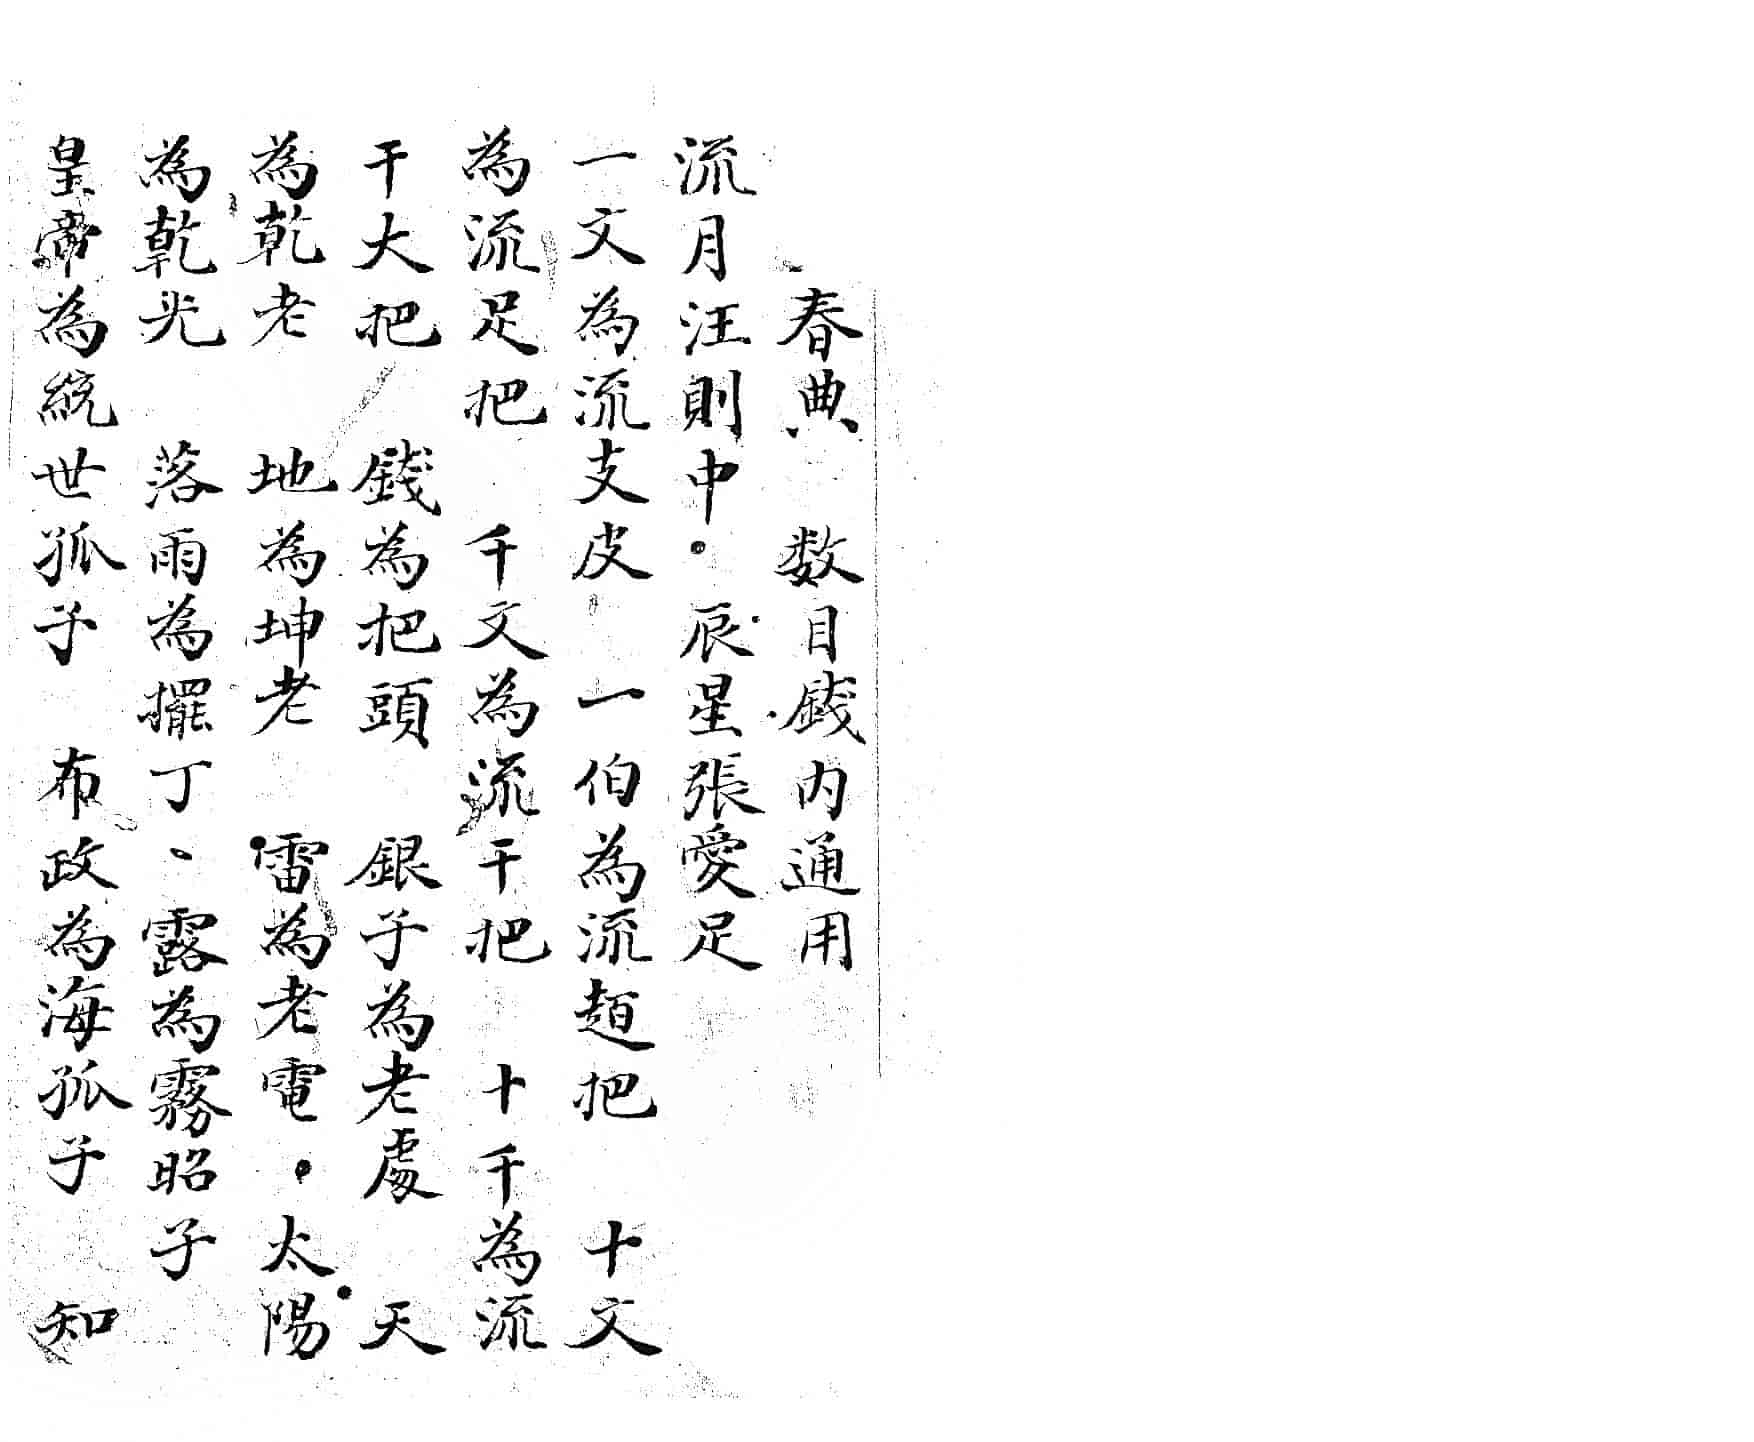 春典 数目錢內通用
流月汪則中 辰星張愛足
一文為流支皮 一伯為流𧼮把 十文
為流足把 千文為流干把 十千為流
干大把 錢為把頭 銀子為老處 天
為乾老 地為坤老 雷為老電 太陽
為乾光 落雨為擺丁、露為霧昭子
皇帝為統世孤子 布政為海孤子 知